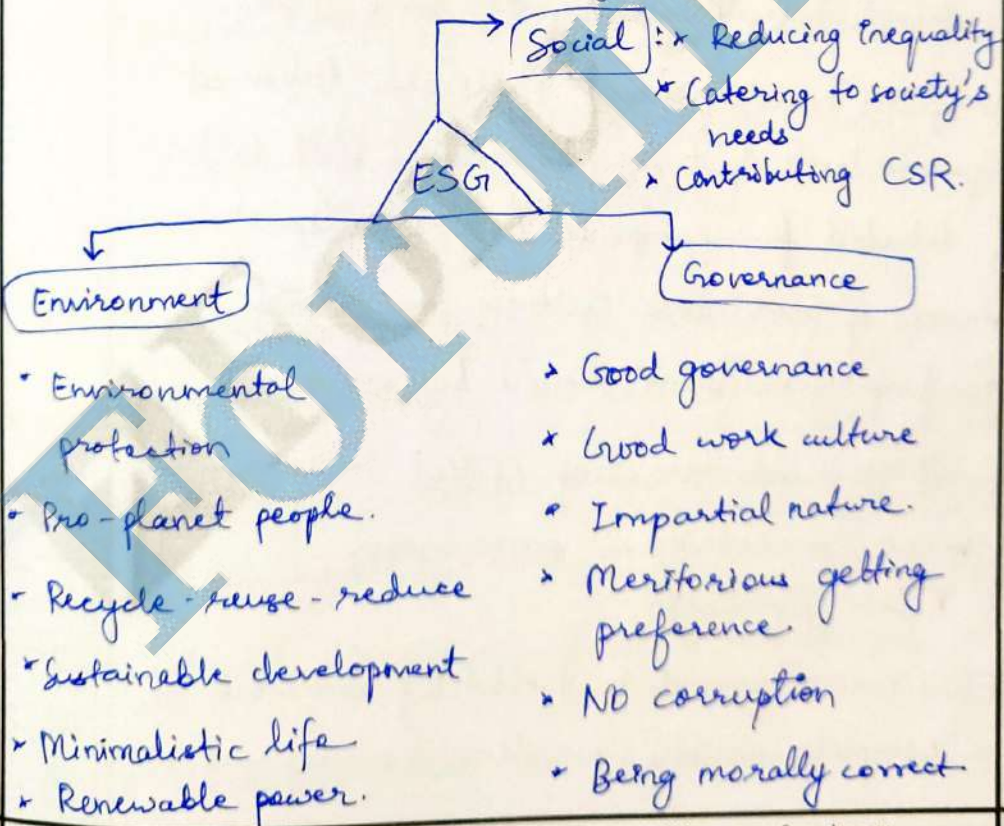 Social : * Reducing inequality
* Catering to society's
needs
* Contributing CSR.
ESG
Environment
Governance
• Environmental
protection
• Pro-planet people.
- Recycle-reuse-reduce
* Sustainable development
* Minimalistic life
* Renewable power.
* Good governance
* Good work culture
* Impartial nature.
* Meritorious getting
preference.
* No corruption
* Being morally correct